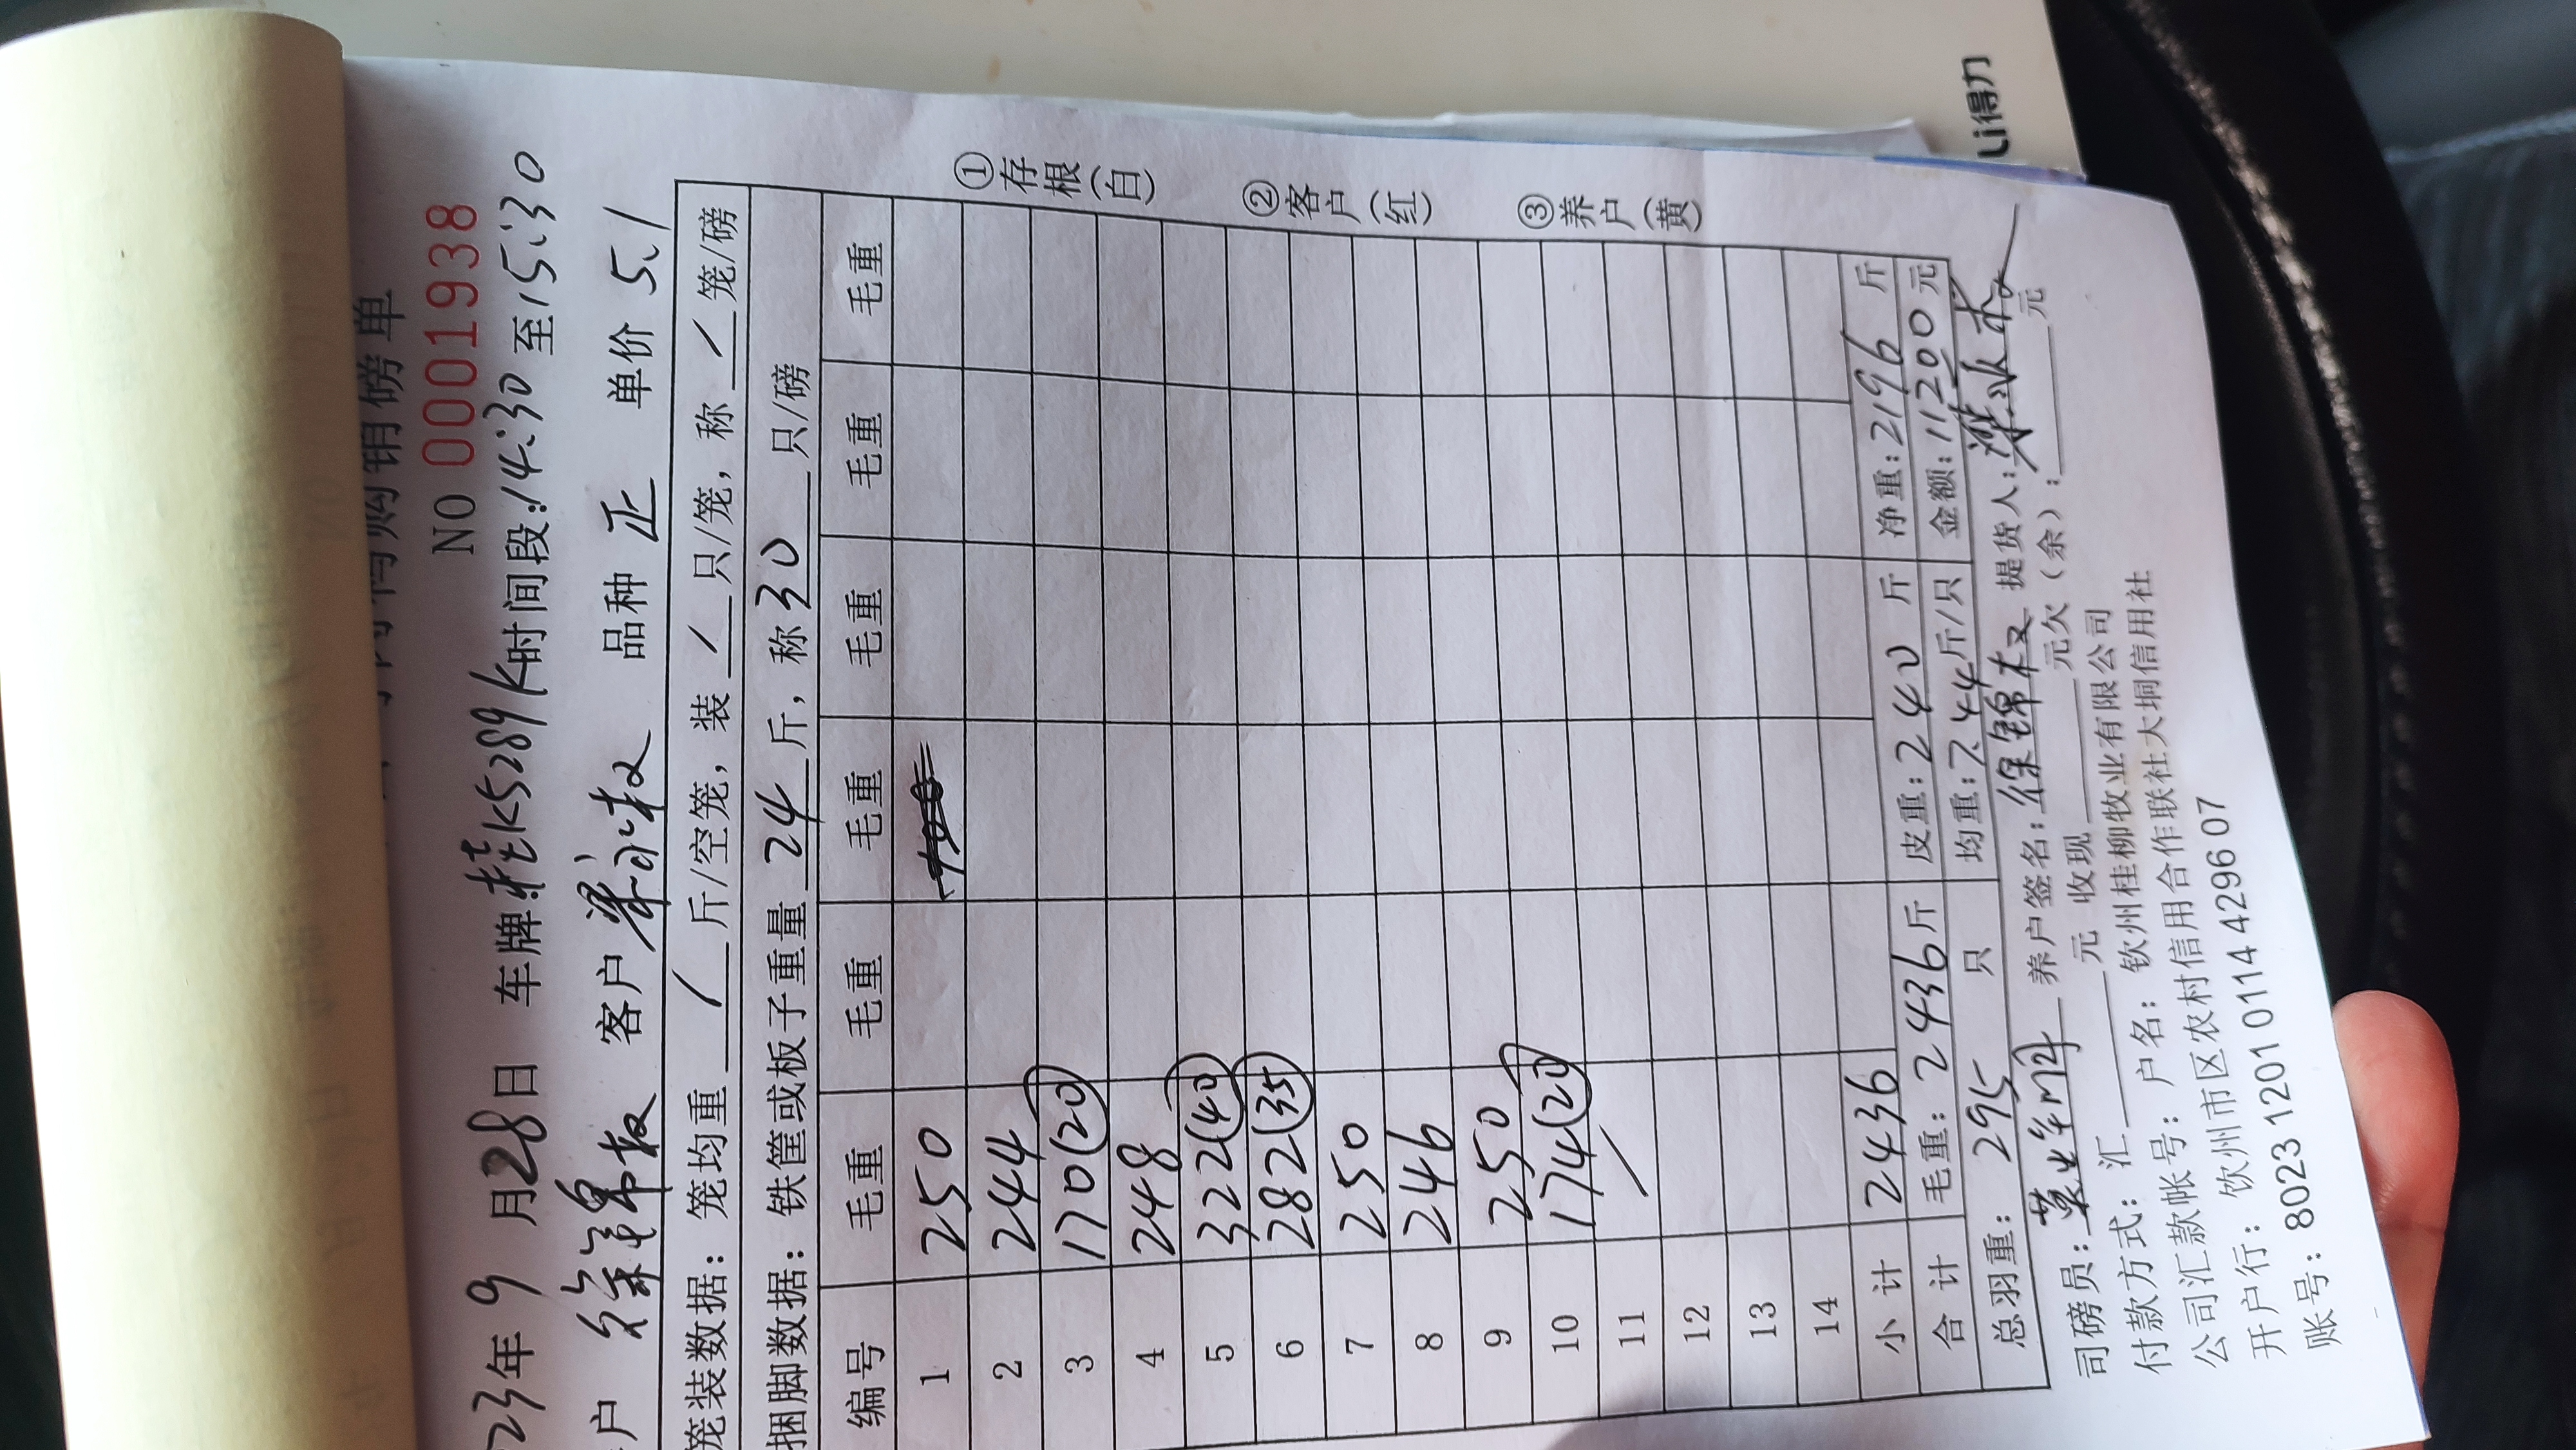 购销磅单
NO 0001938
23年 9 月28日 车牌:桂K5289K 时间段:14:30 至15:30
户 徐锦权 客户 品种 正 单价 5.1
笼装数据: 笼均重 / 斤/空笼, 装 / 只/笼, 称 / 笼/磅
捆脚数据: 铁筐或板子重量 24 斤, 称 30 只/磅
编号 毛重 毛重 毛重 毛重 毛重 毛重
1 250
2 244
3 170(20)
4 248
5 322(40)
6 282(35)
7 250
8 246
9 250
10 174(20)
11 /
12
13
14
小计 2436
合计 毛重: 2436斤 皮重: 240 斤 净重: 2196 斤
总羽重: 295 只 均重: 7.44斤/只 金额: 11200元
司磅员: 养户签名: 徐锦权 提货人:
付款方式: 汇 元 收现 元欠(余): 元
公司汇款帐号: 户名: 钦州桂柳牧业有限公司
开户行: 钦州市区农村信用合作联社大垌信用社
账号: 8023 1201 0114 4296 07
①存根(白)
②客户(红)
③养户(黄)
Li得力